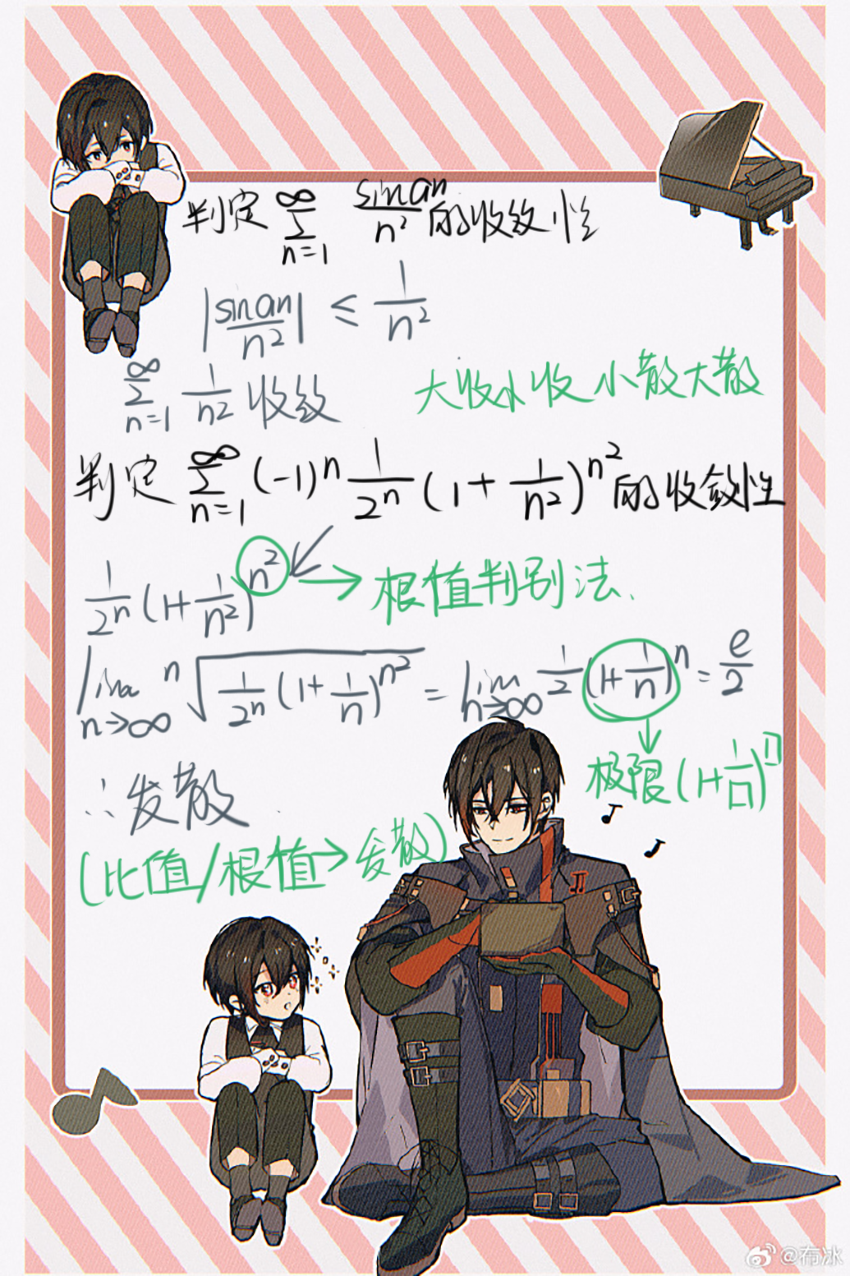 判定 ∞∑n=1 sin an/n² 的收敛性
|sin an/n²| ≤ 1/n²
∞∑n=1 1/n² 收敛 大收小收 小散大散
判定 ∞∑n=1 (-1)ⁿ 1/2ⁿ (1+1/n²)^n² 的收敛性
1/2ⁿ (1+1/n²)^n² → 根值判别法.
lim n→∞ ⁿ√(1/2ⁿ (1+1/n)^n²) = lim n→∞ 1/2 (1+1/n)ⁿ = e/2
极限 (1+1/□)^□
∴发散
(比值/根值→发散)
@布冰